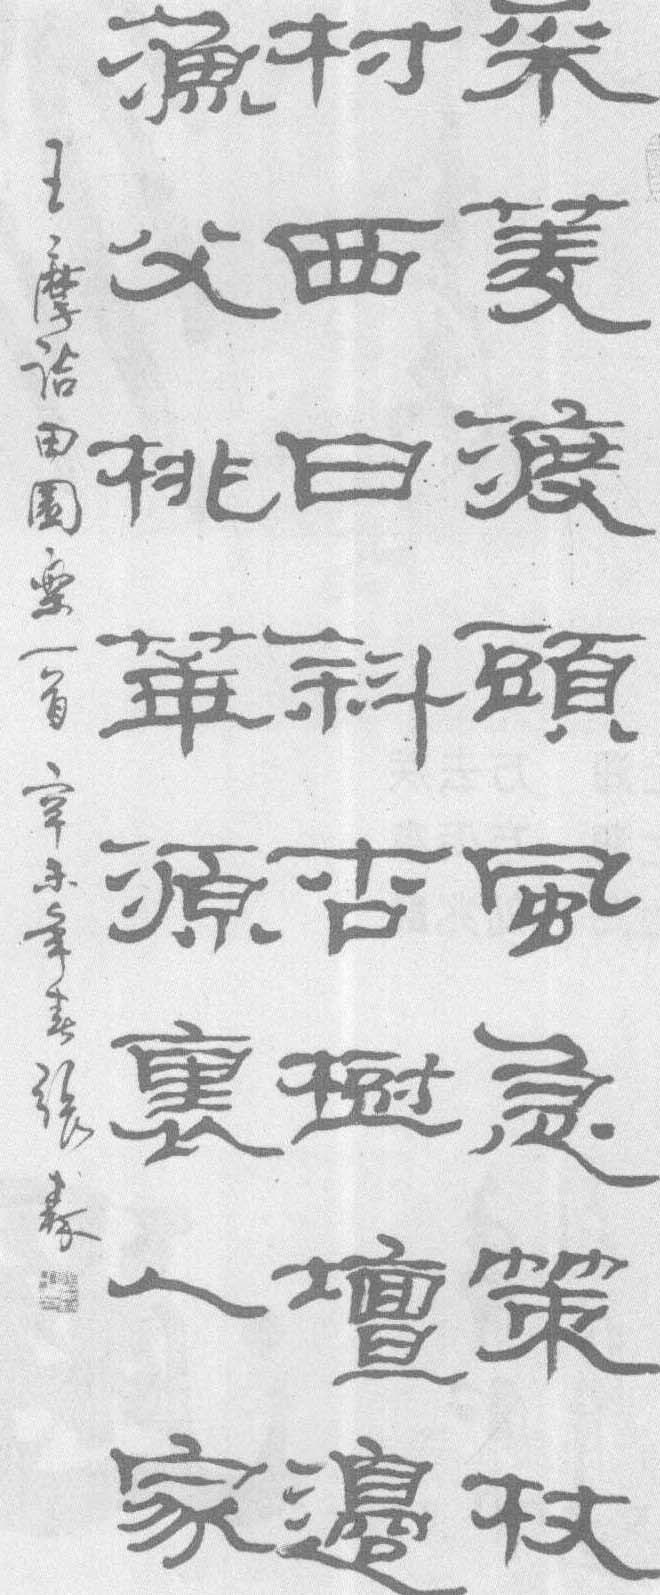 采菱渡頭風急策杖
村西日斜杏樹壇邊
漁父桃華源裏人家
王摩詰田園樂一首 辛未年春 張森